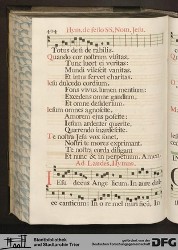 404 Hym. de festo SS. Nom. Jesu.
Totus desiderabilis.
Quando cor nostrum visitas,
Tunc lucet ei veritas:
Mundi vilescit vanitas,
Et intus fervet charitas.
Jesu dulcedo cordium,
Fons vivus, lumen mentium:
Excedens omne gaudium,
Et omne desiderium.
Jesum omnes agnoscite,
Amorem ejus poscite:
Jesum ardenter quærite,
Quærendo inardescite.
Te nostra Jesu vox sonet,
Nostri te mores exprimant:
Te nostra corda diligant
Et nunc & in perpetuum. Amen.
Ad Laudes, Hymnus.
JEsu decus Angelicum, In aure dulce
canticum: In ore mel mirificum, In
Stadtbibliothek
Stadtarchiv Trier